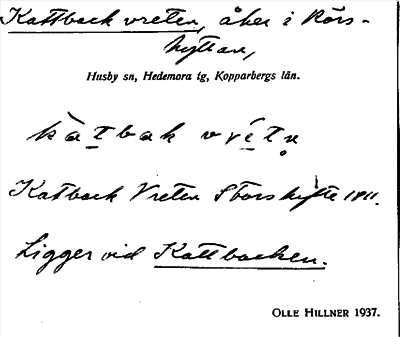 Kattback vreten, åker i Rörs-
hyttan,
Husby sn, Hedemora tg, Kopparbergs län.
kàtbak vrétn̥
Katback Vreten Storshÿtte 1811.
Ligger vid Kattbacken.
OLLE HILLNER 1937.